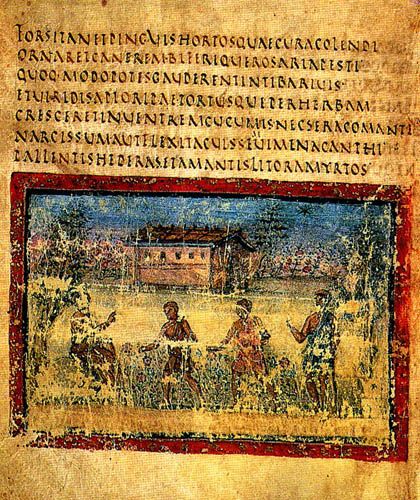 FORSITANETPINGVISHORTOSQVAECVRACOLENDI
ORNARETCANEREMBIFERIQVEROSARIAPESTI
QVOQMODOPOTISGAVDERENTINTIBARIVIS
ETVIRIDISAPIORIPAETORTVSQVEPERHERBAM
CRESCERETINVENTREMCVCVMISNECSERACOMANT
NARCISSVMAVTFLEXITACVISSEVIMENACANTHI
PALLENTISHEDERASETAMANTISLITORAMYRTOS